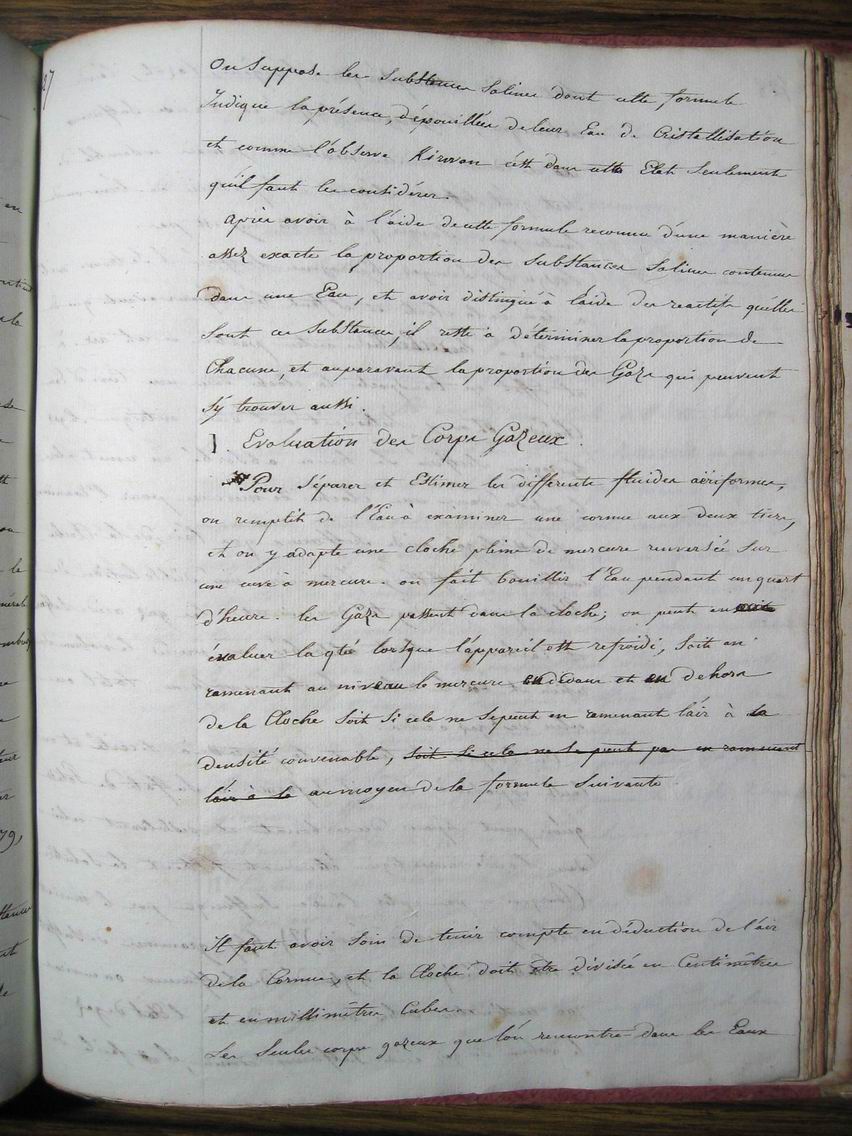 On Suppose les substances Salines dont cette formule
Indique la présence, dépouillées de leur Eau de Cristallisation
et comme l'observe Kirwan c'est dans cette Etat Seulement
qu'il faut les considérer.
Après avoir à l'aide de cette formule reconnu d'une manière
assez exacte la proportion des Substances Salines contenues
dans une Eau, et avoir distingué à l'aide des reactifs quelles
Sont ces Substances, il reste à déterminer la proportion de
Chacune, et auparavant la proportion des Gazs qui peuvent
s'y trouver aussi.
1. Evaluation des Corps Gazeux.
Pour Séparer et Estimer les differents fluides aëriformes,
on remplit de l'Eau à examiner une cornue aux deux tiers,
et on y adapte une cloche pleine de mercure renversée Sur
une cuve à mercure. on fait bouillir l'Eau pendant un quart
d'heure. les Gazs passent dans la cloche; on peut en
évaluer la qté lorsque l'appareil est refroidi, Soit en
ramenant au niveau le mercure en dedans et en dehors
de la Cloche Soit Si cela ne Se peut en ramenant l'air à la
densité convenable, soit si cela ne se peut pas en ramenant
l'air à la au moyen de la formule Suivante
Il faut avoir Soin de tenir compte en déduction de l'air
de la Cornue, et la Cloche doit être divisée en Centimètres
et en millimètres Cubes.
Les Seules corps gazeux que l'on rencontre dans les Eaux
87
en
la
le
79,